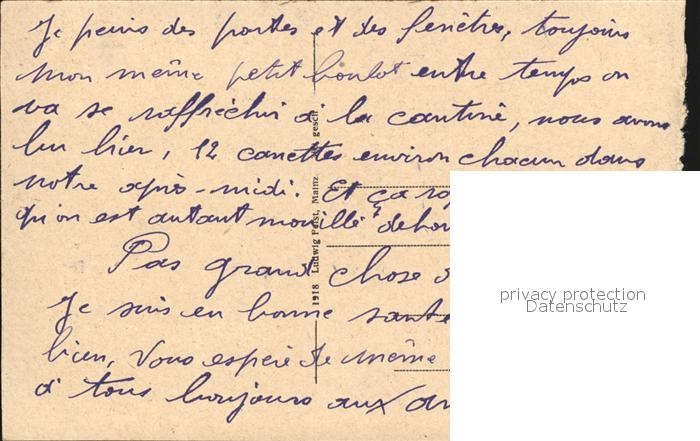 Je peins des portes et des fenêtres, toujours
mon même petit boulot entre temps on
va se raffréchir à la cantine, nous avons
bu hier, 12 canettes environ chacun dans
notre après-midi. Et ça
qu'on est autant mouillé deho
Pas grand chose
Je suis en bonne sante
bien, Vous espère de même
à tous bonjours aux
1918 Ludwig Feist, Mainz gesch
privacy protection
Datenschutz